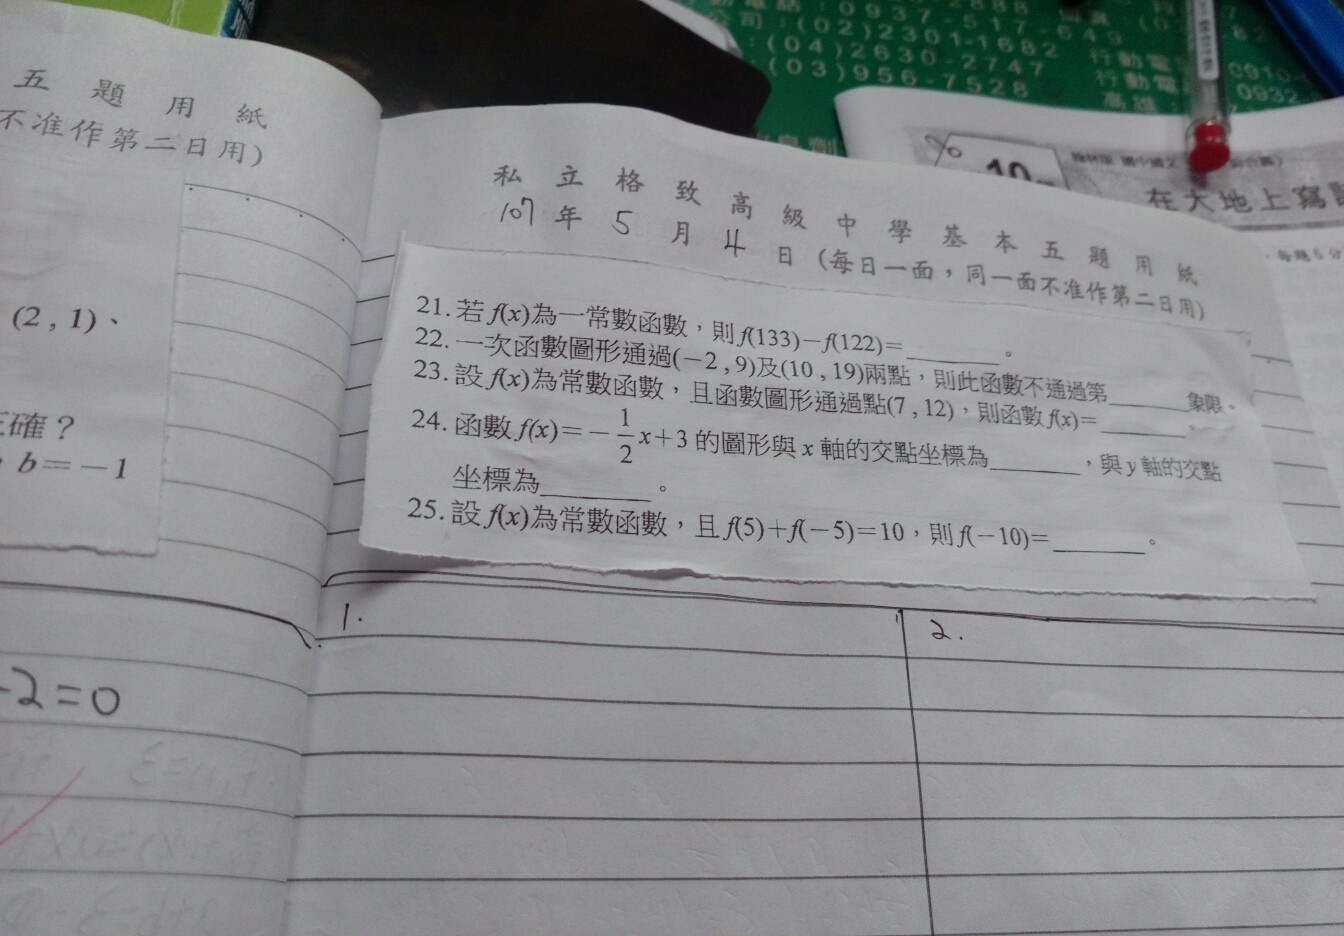 五題用紙
不准作第二日用)
(2 , 1)、
確？
b＝－1
-2=0
私立格致高級中學基本五題用紙
107年5月4日(每日一面，同一面不准作第二日用)
21. 若 f(x)為一常數函數，則 f(133)－f(122)＝________。
22. 一次函數圖形通過(－2 , 9)及(10 , 19)兩點，則此函數不通過第________象限。
23. 設 f(x)為常數函數，且函數圖形通過點(7 , 12)，則函數 f(x)＝________。
24. 函數 f(x)＝－1/2 x＋3 的圖形與 x 軸的交點坐標為________，與 y 軸的交點
坐標為________。
25. 設 f(x)為常數函數，且 f(5)＋f(－5)＝10，則 f(－10)＝________。
1.
2.
0937-517-649
公司：(02)2301-1682
(04)2630-2747 行動電
(03)956-7528 行動電
0910-
0932-
高雄：
10
在大地上寫
每題6分